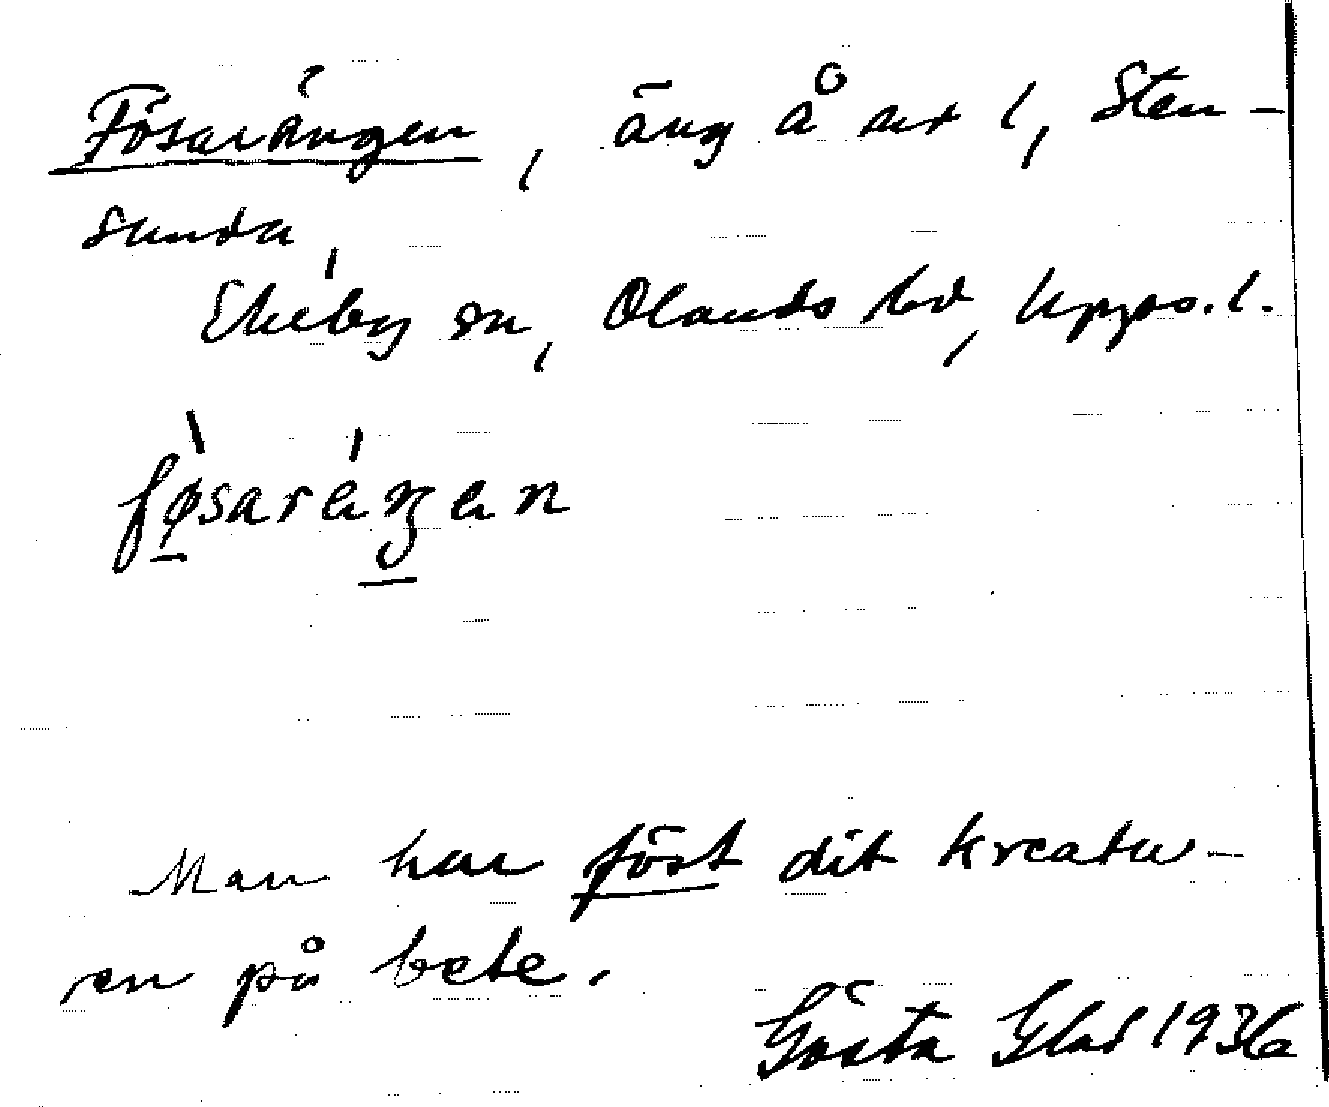 Fösarängen, äng å nr 1, Sten-
sunda,
Ekeby sn, Olands hd, Upps. l.
fø̀sarä́ŋen
Man har föst dit kreatu-
ren på bete.
Gösta Glad 1936